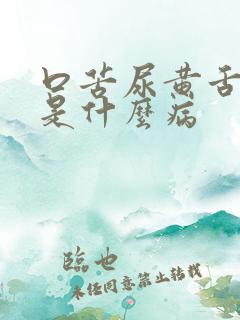 口苦尿黄舌
是什麼病
臨也
未经同意禁止转载